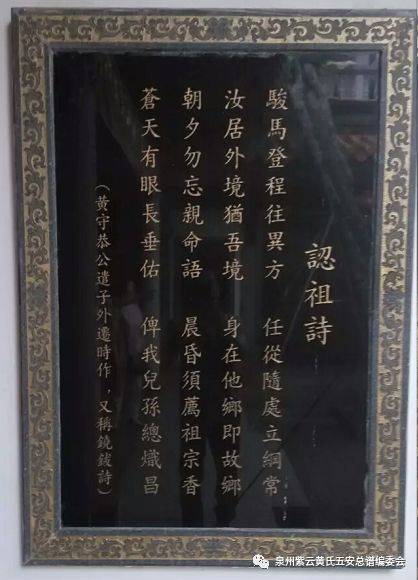 認祖詩
駿馬登程往異方 任從隨處立綱常
汝居外境猶吾境 身在他鄉即故鄉
朝夕勿忘親命語 晨昏須薦祖宗香
蒼天有眼長垂佑 俾我兒孫總熾昌
（黃守恭公遣子外遷時作，又稱鐃鈸詩）
泉州紫云黄氏五安总谱编委会